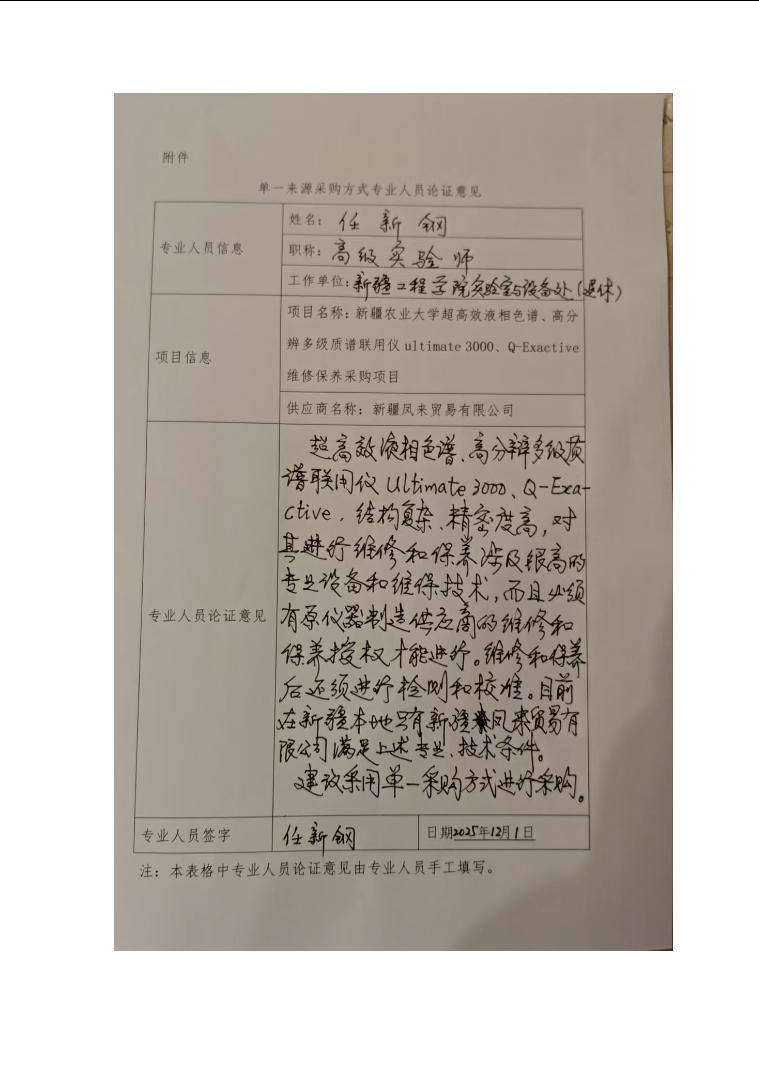 附件
单一来源采购方式专业人员论证意见
专业人员信息
姓名：任新钢
职称：高级实验师
工作单位：新疆工程学院实验室与设备处（退休）
项目信息
项目名称：新疆农业大学超高效液相色谱、高分
辨多级质谱联用仪 ultimate 3000、Q-Exactive
维修保养采购项目
供应商名称：新疆凤来贸易有限公司
专业人员论证意见
超高效液相色谱、高分辩多级质
谱联用仪 Ultimate 3000、Q-Exa-
ctive，结构复杂、精密度高，对
其进行维修和保养涉及很高的
专业设备和维保技术，而且必须
有原仪器制造供应商的维修和
保养授权才能进行。维修和保养
后还须进行检测和校准。目前
在新疆本地只有新疆凤来贸易有
限公司满足上述专业、技术条件。
建议采用单一采购方式进行采购。
专业人员签字
任新钢
日期2025年12月1日
注：本表格中专业人员论证意见由专业人员手工填写。